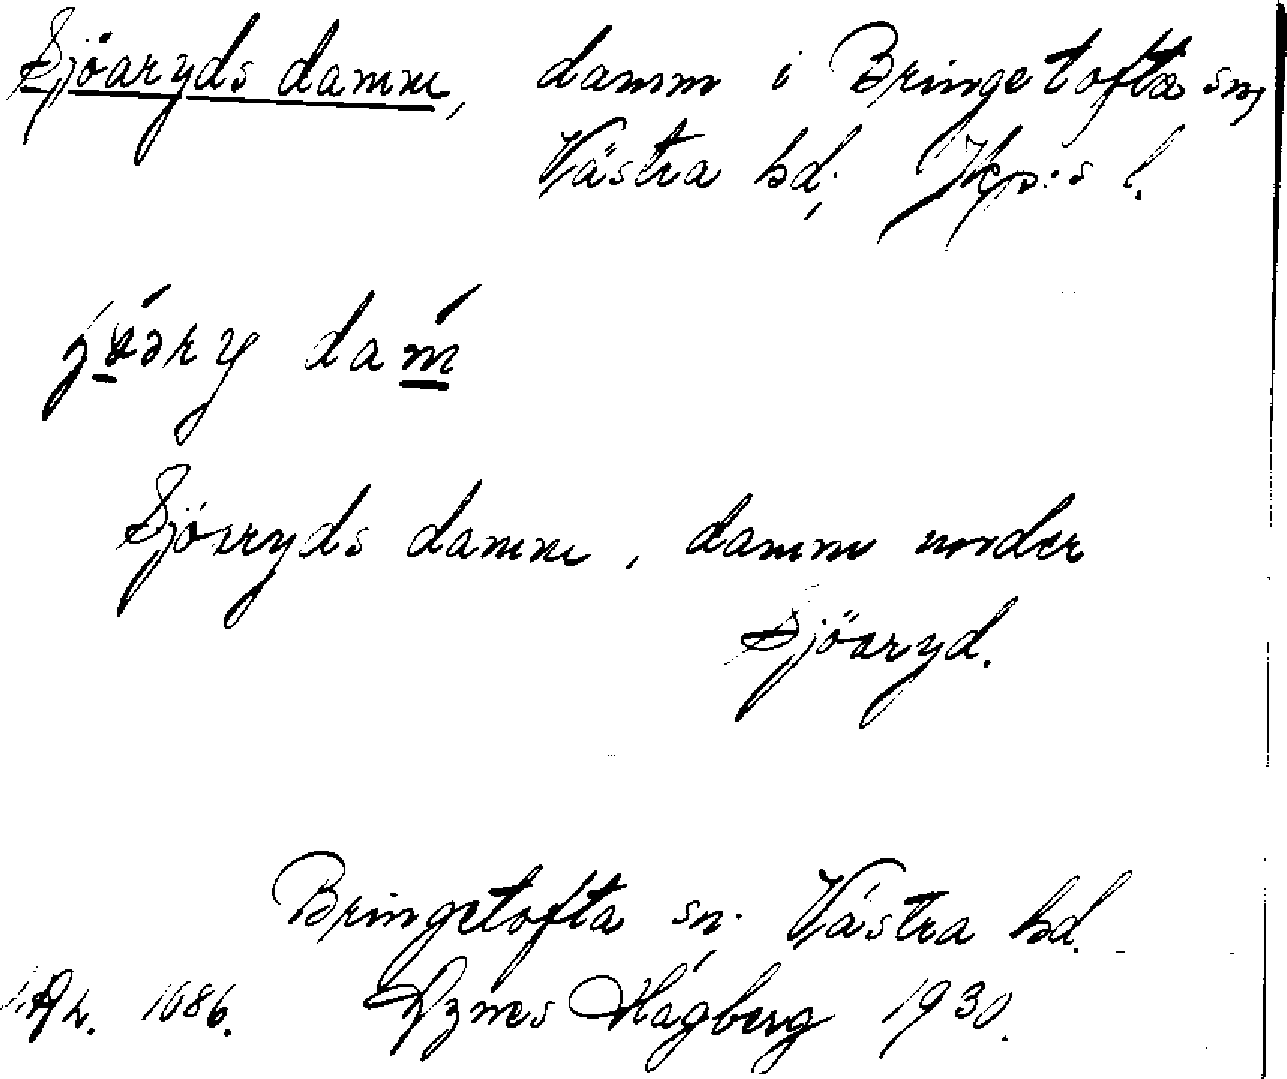 Sjöaryds damm, damm i Bringetofta sn,
Västra hd; Jkp:s l.
Sjöaryds damm, damm under
Sjöaryd.
Bringetofta sn; Västra hd.
1086. Agnes Hagberg 1930.